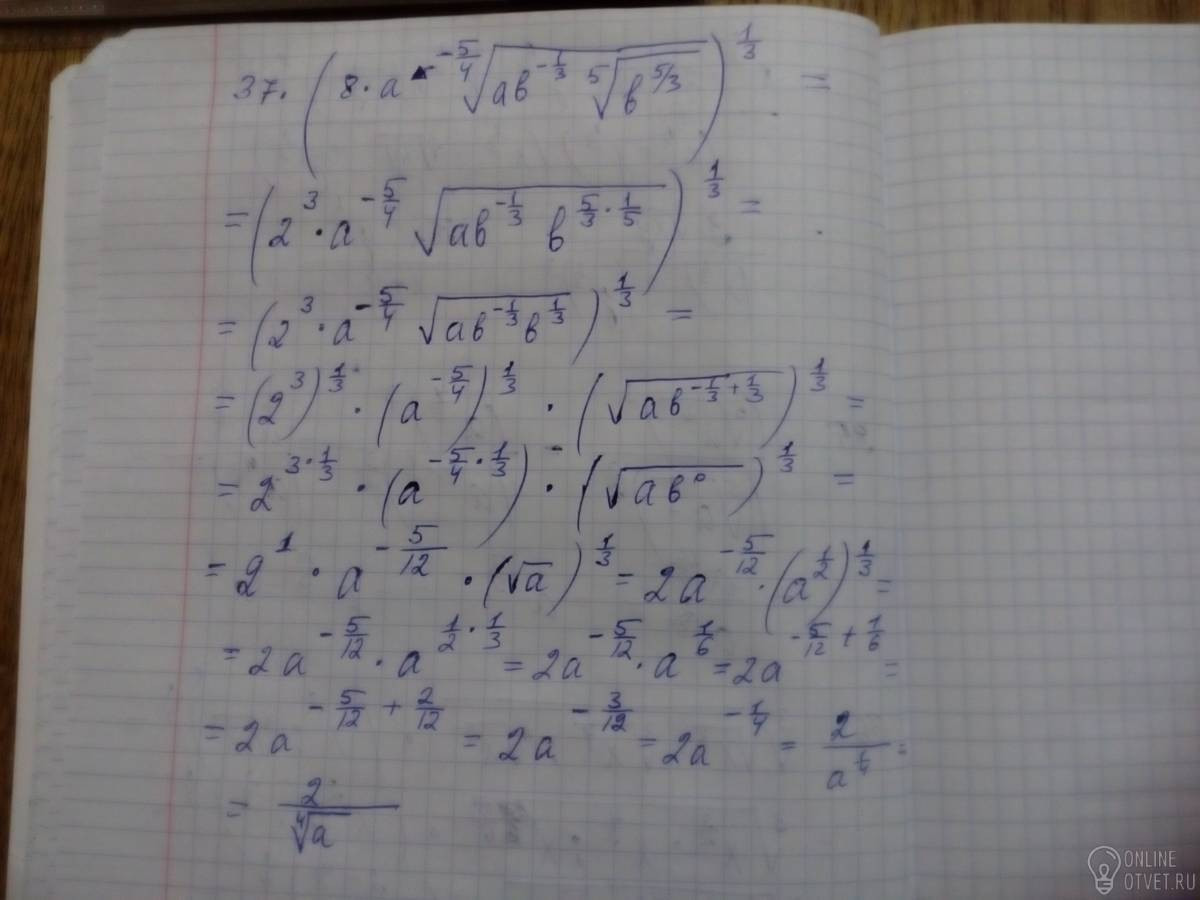 37. (8·a^{-5/4} √(ab^{-1/3} ⁵√(b^{5/3})))^{1/3} =
= (2^3·a^{-5/4} √(ab^{-1/3} b^{5/3·1/5}))^{1/3} =
= (2^3·a^{-5/4} √(ab^{-1/3}b^{1/3}))^{1/3} =
= (2^3)^{1/3}·(a^{-5/4})^{1/3}·(√(ab^{-1/3+1/3}))^{1/3} =
= 2^{3·1/3}·(a^{-5/4·1/3})·(√(ab^0))^{1/3} =
= 2^1·a^{-5/12}·(√a)^{1/3} = 2a^{-5/12}·(a^{1/2})^{1/3} =
= 2a^{-5/12}·a^{1/2·1/3} = 2a^{-5/12}·a^{1/6} = 2a^{-5/12+1/6} =
= 2a^{-5/12+2/12} = 2a^{-3/12} = 2a^{-1/4} = 2/a^{1/4} =
= 2/⁴√a
ONLINE
OTVET.RU